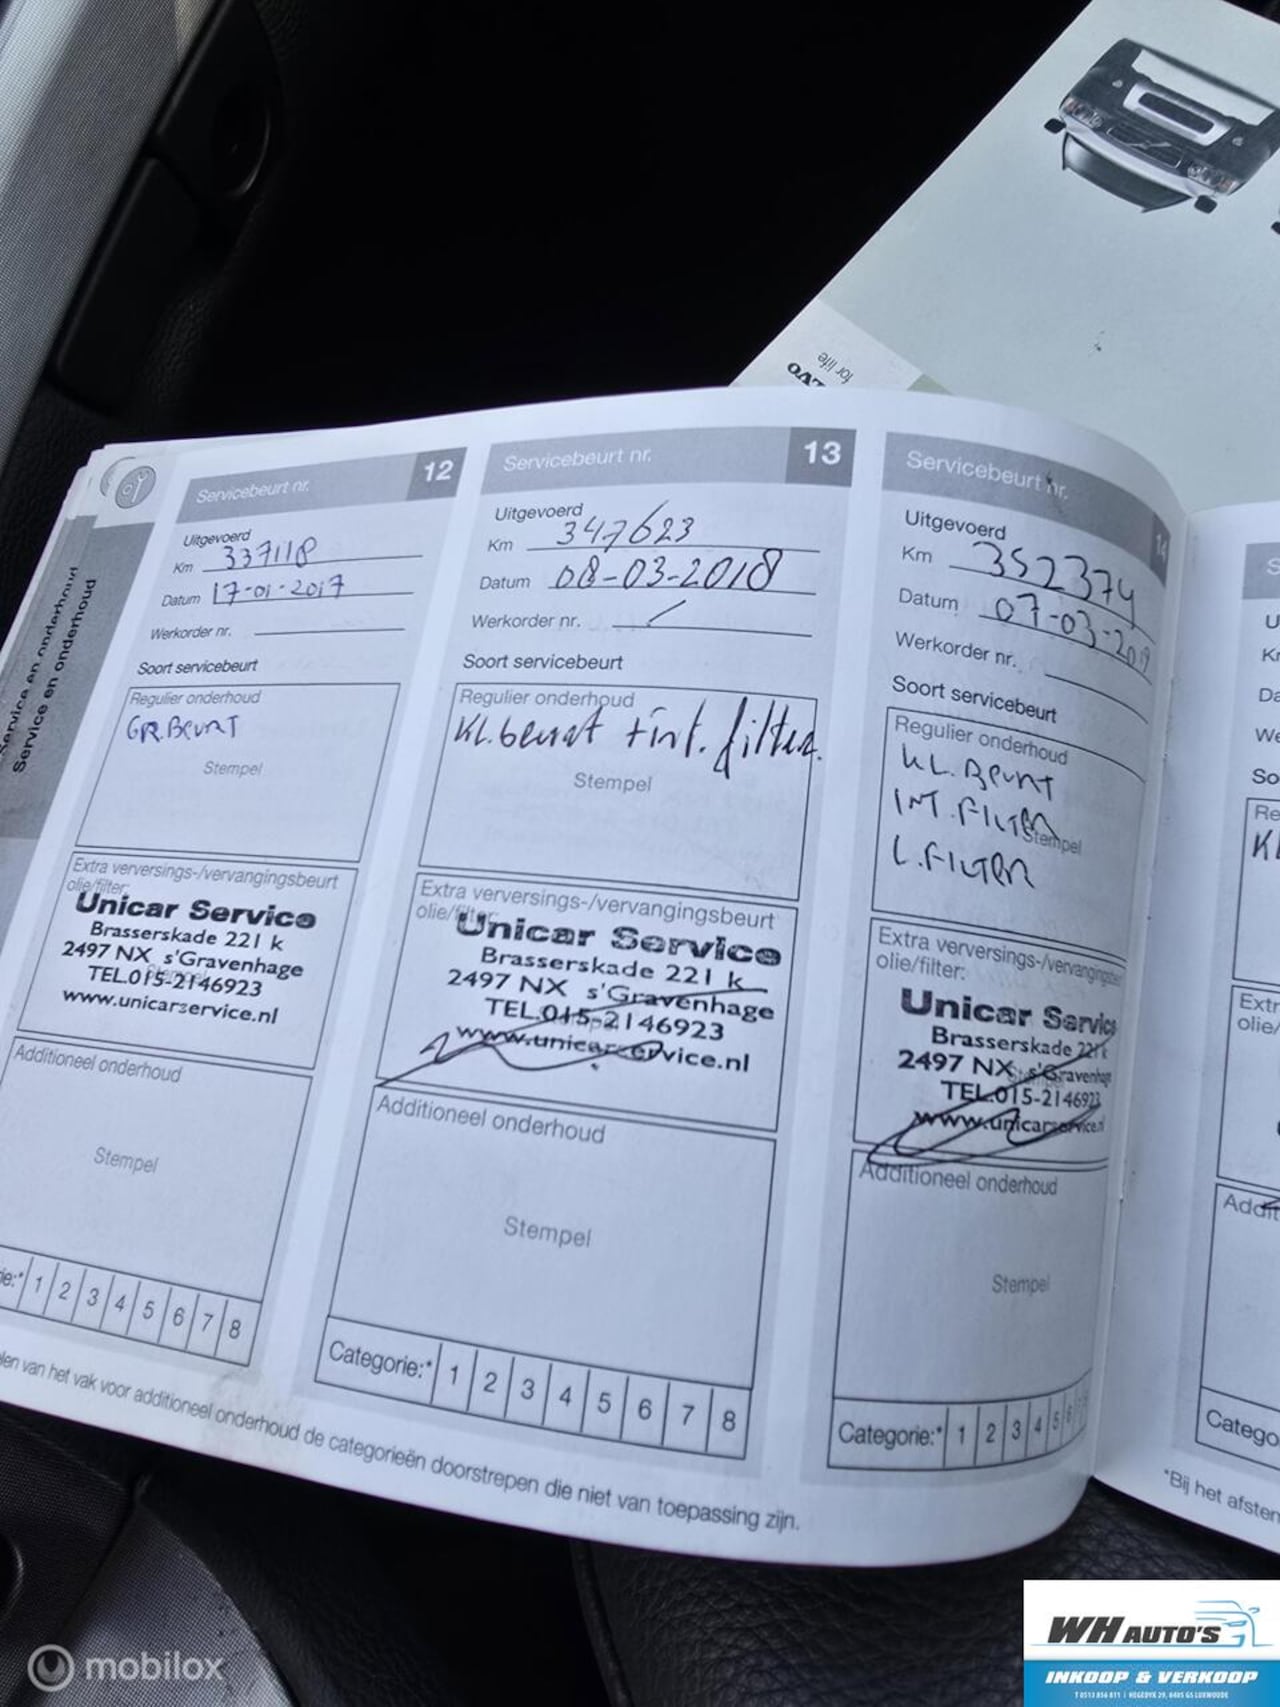 for life
Service en onderhoud
Service en onderhoud
Servicebeurt nr. 12
Uitgevoerd
Km 337118
Datum 17-01-2017
Werkorder nr.
Soort servicebeurt
Regulier onderhoud
GR.BEURT
Stempel
Extra verversings-/vervangingsbeurt
olie/filter:
Unicar Service
Brasserskade 221 k
2497 NX s'Gravenhage
TEL.015-2146923
www.unicarservice.nl
Additioneel onderhoud
Stempel
1 2 3 4 5 6 7 8
Servicebeurt nr. 13
Uitgevoerd
Km 347623
Datum 08-03-2018
Werkorder nr. /
Soort servicebeurt
Regulier onderhoud
KL.beurt + int. filter.
Stempel
Extra verversings-/vervangingsbeurt
olie/filter:
Unicar Service
Brasserskade 221 k
2497 NX s'Gravenhage
TEL.015-2146923
www.unicarservice.nl
Additioneel onderhoud
Stempel
Categorie:* 1 2 3 4 5 6 7 8
van het vak voor additioneel onderhoud de categorieën doorstrepen die niet van toepassing zijn.
Servicebeurt nr. 14
Uitgevoerd
Km 352374
Datum 07-03-2019
Werkorder nr.
Soort servicebeurt
Regulier onderhoud
KL.BEURT
INT.FILTER
Stempel
L.FILTER
Extra verversings-/vervangingsbeurt
olie/filter:
Unicar Service
Brasserskade 221 k
2497 NX s'Gravenhage
TEL.015-2146923
www.unicarservice.nl
Additioneel onderhoud
Stempel
Categorie:* 1 2 3 4 5 6
*Bij het
mobilox
WH AUTO'S
INKOOP & VERKOOP
T 0513 856 811 | HEGEDYK 29, 8405 GS LUXWOUDE